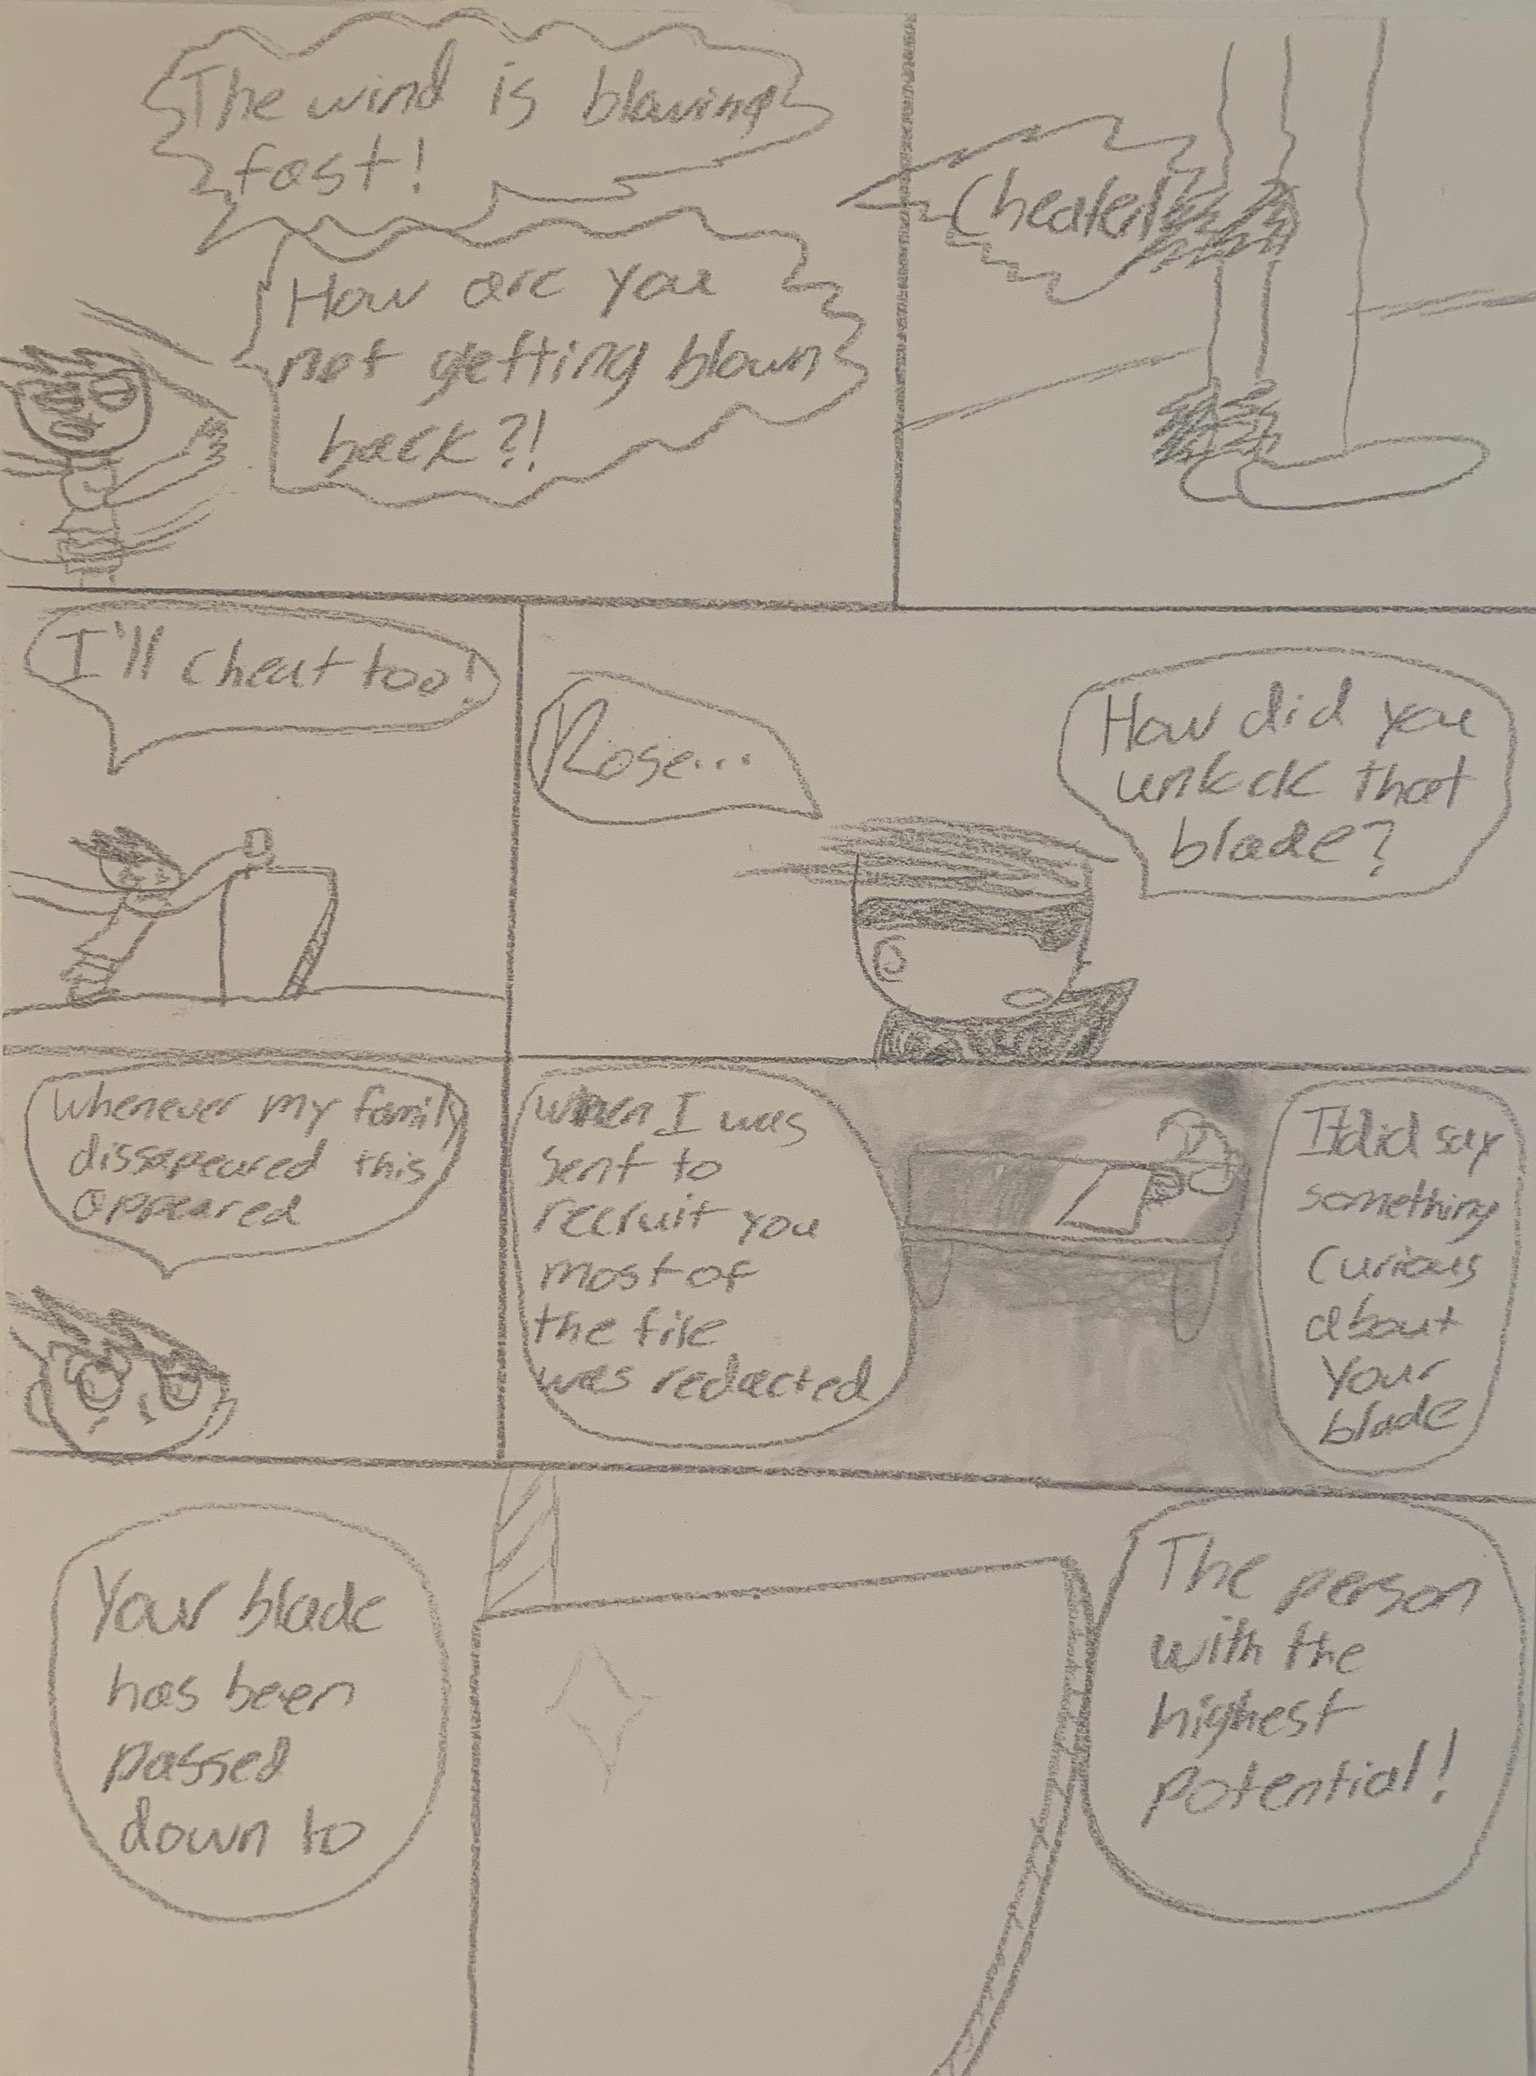 The wind is blowing
fast!
How are you
not getting blown
back?!
Cheater!
I'll cheat too!
Rose...
How did you
unlock that
blade?
Whenever my family
dissapeared this
appeared
When I was
sent to
recruit you
most of
the file
was redacted
It did say
something
curious
about
your
blade
Your blade
has been
passed
down to
The person
with the
highest
potential!